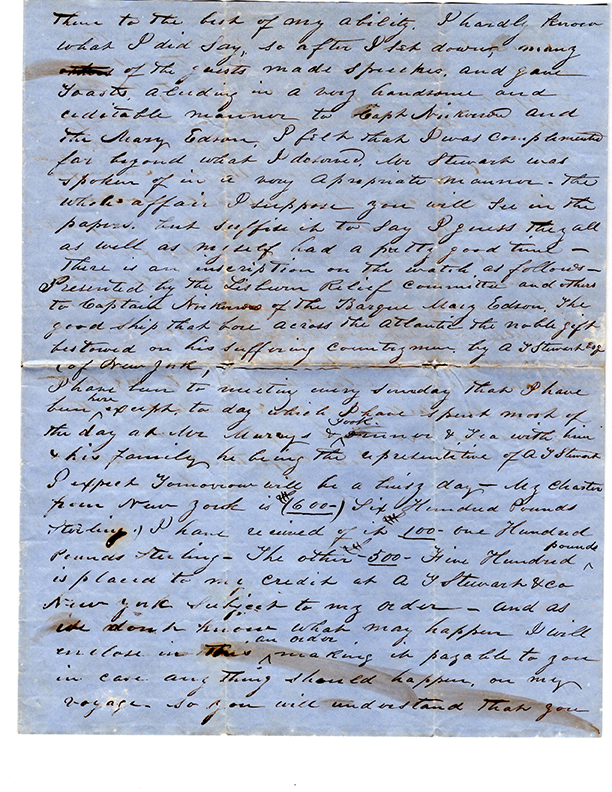 them to the best of my ability. I hardly know
what I did say, so after I set down, many
of the guests made speeches, and gave
Toasts, aleuding in a very handsome and
creditable manner to Capt Nickerson and
the Mary Edson, I felt that I was complimented
far beyond what I deserved, Mr Stewart was
spoken of in a very apropriate manner - the
whole affair I suppose you will see in the
papers. but suffise it to say I guess they all
as well as myself had a pretty good time -
there is an inscription on the watch as follows -
Presented by the Lisburn Relief Committe and others
to Captain Nickerson of the Barque Mary Edson, The
good ship that bore across the Atlantic the noble gift
bestowed on his suffering countrymen by A T Stewart Esqr
(of New York, -
I have been to meeting every sunday that I have
been here except to day which I have spent most of
the day at Mr Murcys & Took Dinner & Tea with him
& his family he being the representitive of A T Stewart
I expect Tomorrow will be a buisy day - My Charter
from New York is (600-) Six Hundred Pounds
Sterling,) I have received of it 100- one Hundred
Pounds Sterling - The other -500- Five Hundred pounds
is placed to my credit at A T Stewart & co
New York subject to my order - and as
we dont know what may happen I will
enclose in this an order making it payable to you
in case anything should happen, on my
voyage - so you will understand that you